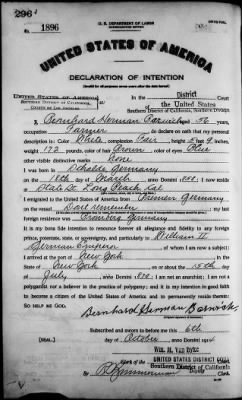 296
No. 1896
U. S. DEPARTMENT OF LABOR
UNITED STATES OF AMERICA
DECLARATION OF INTENTION
(Invalid for all purposes seven years after the date hereof)
UNITED STATES OF AMERICA
SOUTHERN DISTRICT OF CALIFORNIA, ss:
COUNTY OF LOS ANGELES
In the District Court
of the United States
Southern District of California, Southern Division
I, Bernhard Herman, aged 56 years,
occupation Farmer, do declare on oath that my personal
description is: Color White, complexion Fair, height 5 feet inches,
weight 172 pounds, color of hair Brown, color of eyes Blue
other visible distinctive marks None
I was born in Germany
on the 18th day of March, anno Domini; I now reside
at State St. Long Beach, Cal
I emigrated to the United States of America from Bremen Germany
on the vessel; my last
foreign residence was Germany
It is my bona fide intention to renounce forever all allegiance and fidelity to any foreign
prince, potentate, state, or sovereignty, and particularly to William II
German Emperor, of whom I am now a subject;
I arrived at the port of New York, in the
State of New York, on or about the 15th day
of July, anno Domini; I am not an anarchist; I am not a
polygamist nor a believer in the practice of polygamy; and it is my intention in good faith
to become a citizen of the United States of America and to permanently reside therein:
SO HELP ME GOD.
Bernhard Herman
Subscribed and sworn to before me this 6th
[SEAL.] day of October, anno Domini 1914
WM. M. VAN DYKE
Clerk of the UNITED STATES DISTRICT COURT
Southern District of California
By Deputy Clerk.